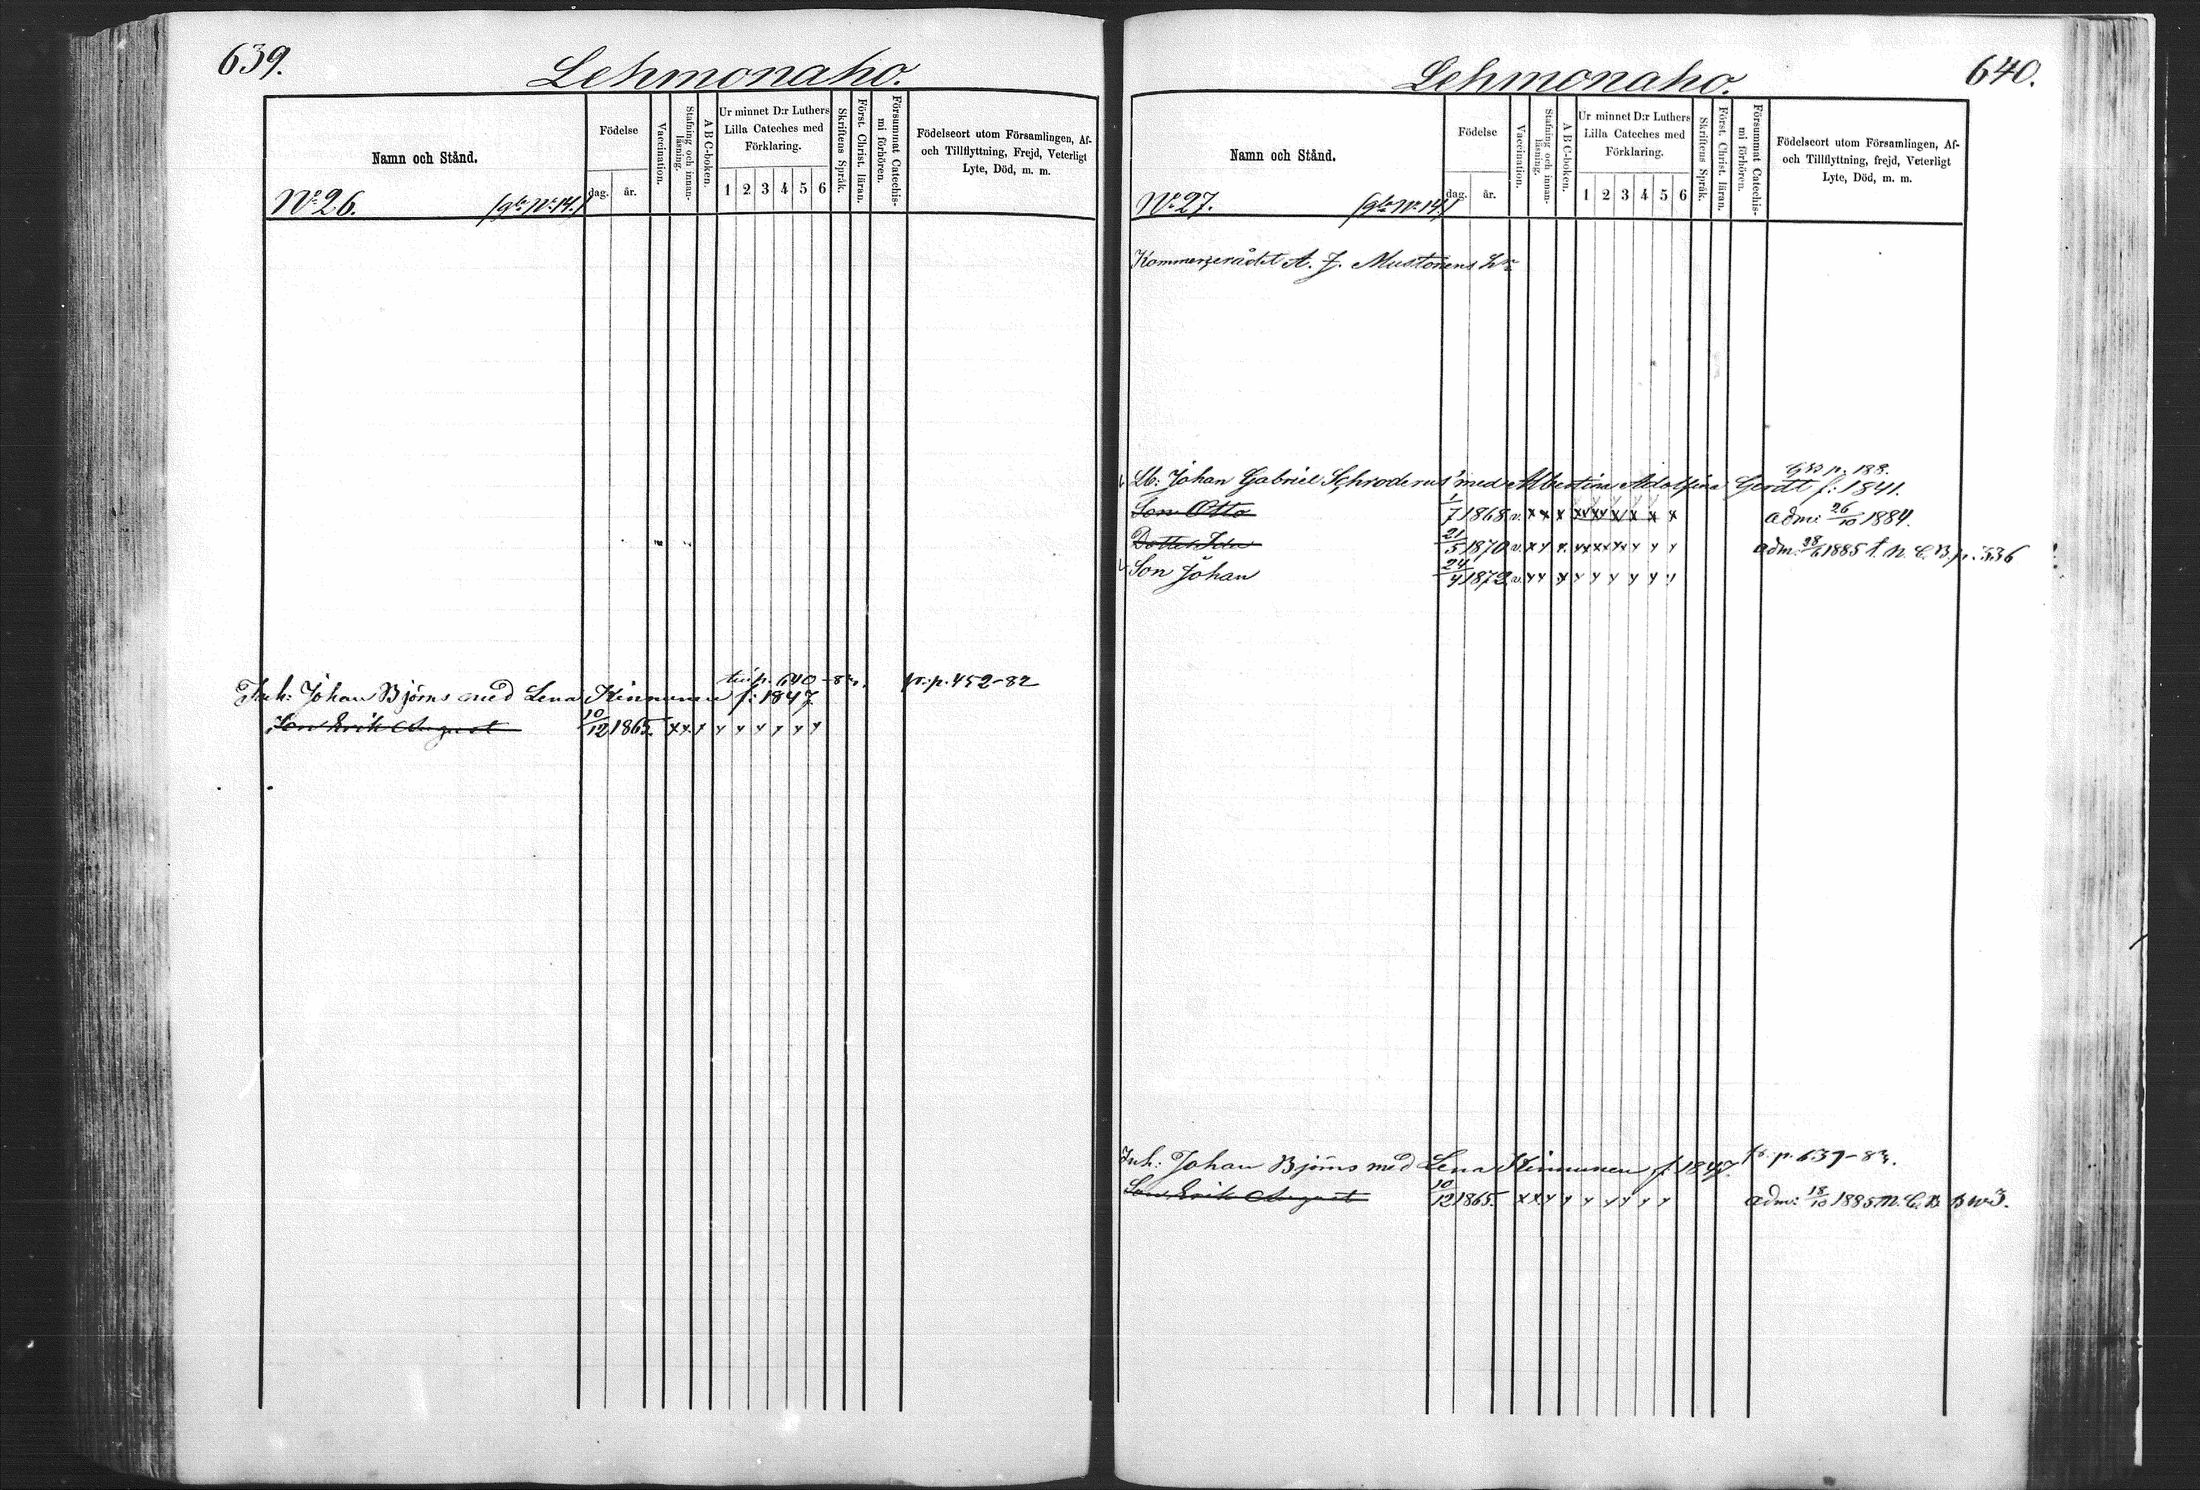 639.
Lehmonaho.
Namn och Stånd.
Födelse
dag.
år.
Vaccination.
Stafning och innan-
läsning.
A B C-boken.
Ur minnet D:r Luthers
Lilla Cateches med
Förklaring.
1 2 3 4 5 6
Skriftens Språk.
Först. Christ. läran.
Försummat Catechis-
mi förhören.
Födelseort utom Församlingen, Af-
och Tillflyttning, Frejd, Veterligt
Lyte, Död, m. m.
No 26.
No 14.
till p. 640-83.
fr. p. 452-82
Inh: Johan Björns med Lena Kinnunen f: 1847.
Son Erik August 10/12 1865. x x x x x x x x x
640.
Lehmonaho.
Namn och Stånd.
Födelse
dag.
år.
Vaccination.
Stafning och innan-
läsning.
A B C-boken.
Ur minnet D:r Luthers
Lilla Cateches med
Förklaring.
1 2 3 4 5 6
Skriftens Språk.
Först. Christ. läran.
Försummat Catechis-
mi förhören.
Födelseort utom Församlingen, Af-
och Tillflyttning, frejd, Veterligt
Lyte, Död, m. m.
No 27.
No 14.
Kommerserådet A. J. Mustonens
p. 188.
Johan Gabriel Schroderus med Albertina Adolfina Gerdt f: 1841.
Son Otto 1/7 1868 v. x x x x x x x x x adm: 26/10 1884.
Dotter Ida 21/5 1870 v. x x x x x x x x x adm. 1885 N. C. B. p. 536
Son Johan 24/4 1872 v. x x x x x x x x x
Inh: Johan Björns med Lena Kinnunen f. 1847. fr. p. 639-83.
Son Erik August 10/12 1865. x x x x x x x x x adm: 18/10 1885 N. C. B.